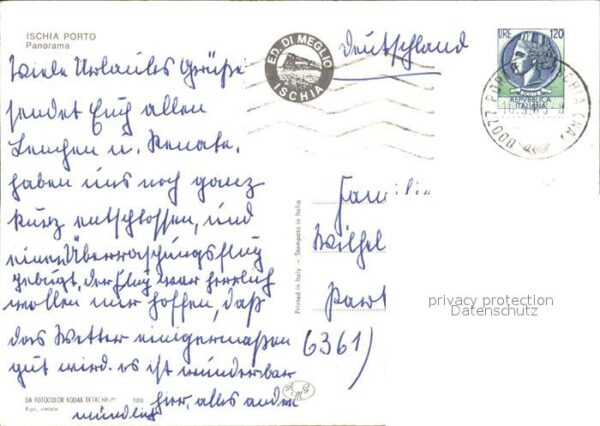 ISCHIA PORTO
Panorama
Viele Urlaubs Grüße
sendet Euch allen
Lenchen u. Renate.
haben uns noch ganz
kurz entschlossen, und
einen Überraschungsflug
gebugt, der Flug war herrlich
wollen nur hoffen, daß
das Wetter einigermaßen
gut wird. es ist wunderbar
hier, alles andere
mündlich
DA FOTOCOLOR KODAK EKTACHROME 100
Rip. vietata
ED. DI MEGLIO
ISCHIA
Deutschland
LIRE 120
REPVBBLICA
ITALIANA
80077 ISCHIA (NA)
Printed in Italy - Stampato in Italia
Famili
Wilhel
6361)
privacy protection
Datenschutz